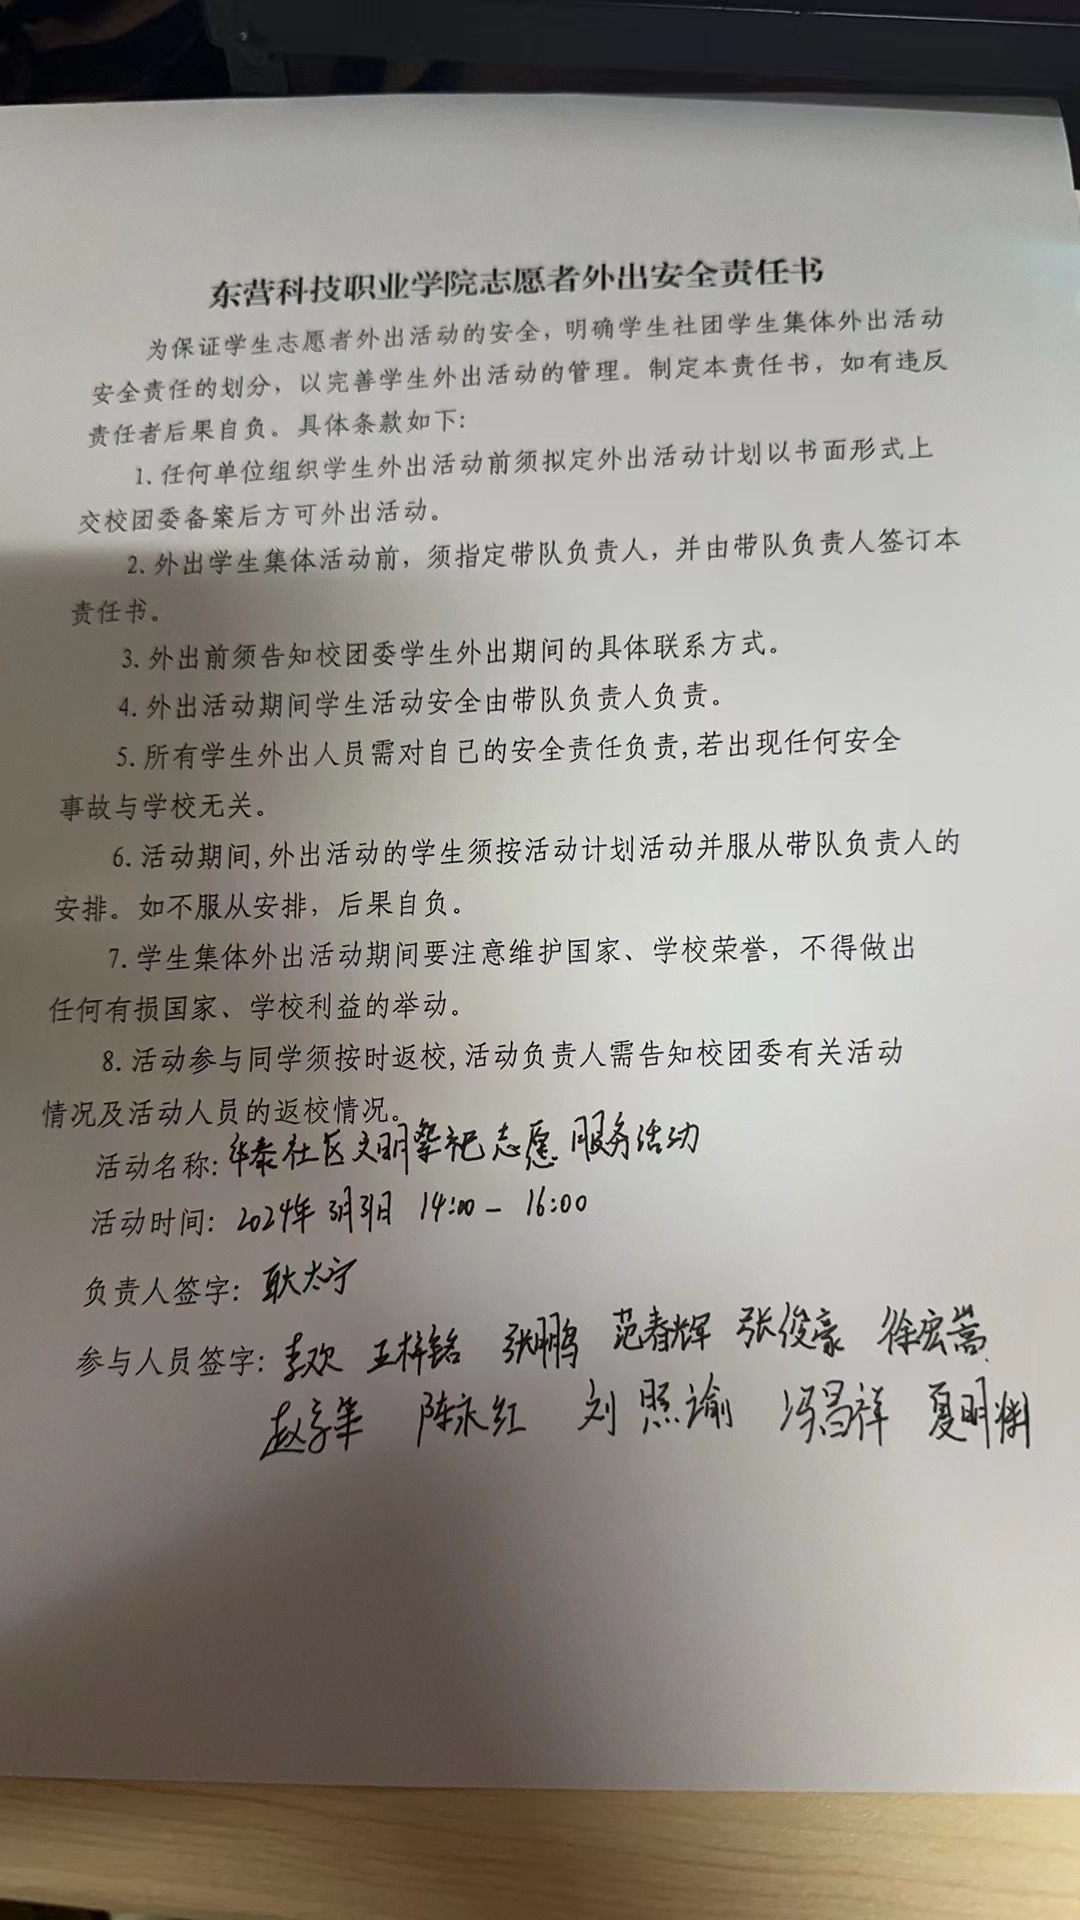 东营科技职业学院志愿者外出安全责任书
为保证学生志愿者外出活动的安全，明确学生社团学生集体外出活动
安全责任的划分，以完善学生外出活动的管理。制定本责任书，如有违反
责任者后果自负。具体条款如下：
1. 任何单位组织学生外出活动前须拟定外出活动计划以书面形式上
交校团委备案后方可外出活动。
2. 外出学生集体活动前，须指定带队负责人，并由带队负责人签订本
责任书。
3. 外出前须告知校团委学生外出期间的具体联系方式。
4. 外出活动期间学生活动安全由带队负责人负责。
5. 所有学生外出人员需对自己的安全责任负责,若出现任何安全
事故与学校无关。
6. 活动期间,外出活动的学生须按活动计划活动并服从带队负责人的
安排。如不服从安排，后果自负。
7. 学生集体外出活动期间要注意维护国家、学校荣誉，不得做出
任何有损国家、学校利益的举动。
8. 活动参与同学须按时返校,活动负责人需告知校团委有关活动
情况及活动人员的返校情况。
活动名称: 华泰社区文明祭祀志愿服务活动
活动时间: 2024年3月31日 14:00 - 16:00
负责人签字: 耿太宁
参与人员签字: 李欢 王梓铭 张鹏 范春辉 张俊豪 徐宏嵩
陈永红 刘照谕 冯昌祥 夏明渊